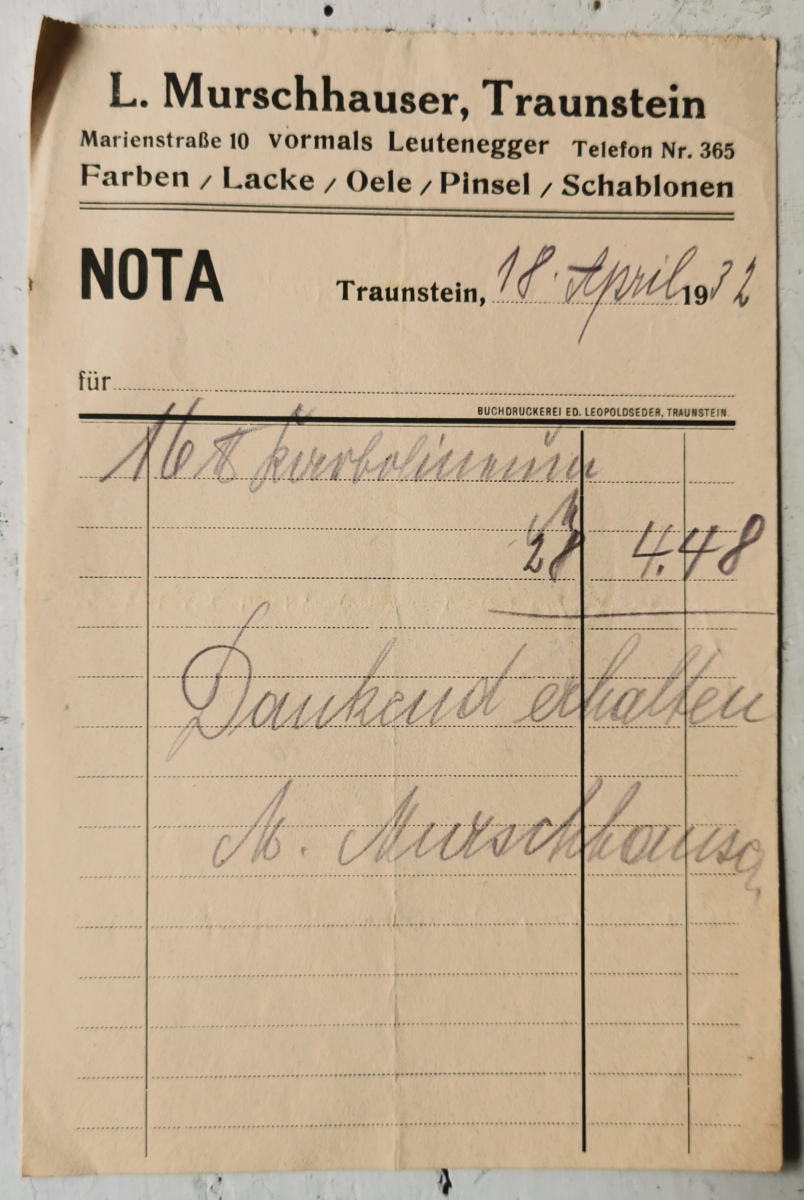 L. Murschhauser, Traunstein
Marienstraße 10 vormals Leutenegger Telefon Nr. 365
Farben / Lacke / Oele / Pinsel / Schablonen
NOTA
Traunstein, 18. April 1932
für
BUCHDRUCKEREI ED. LEOPOLDSEDER, TRAUNSTEIN.
16 ℔ Karbolineum
28 4.48
Dankend erhalten
M. Murschhauser